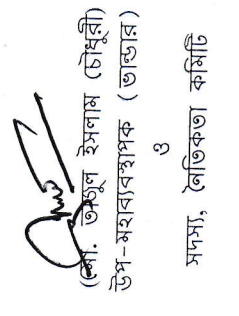 (মো. তাজুল ইসলাম চৌধুরী)
উপ-মহাব্যবস্থাপক (ভান্ডার)
ও
সদস্য, নৈতিকতা কমিটি